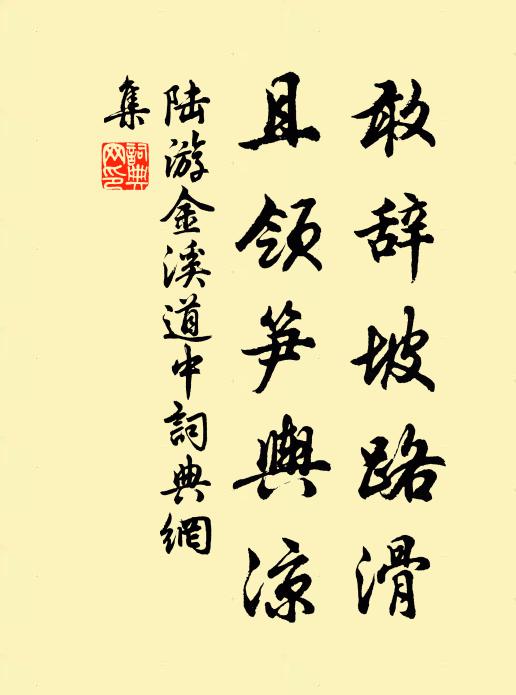 敢辞坡路滑
且领笋輿凉
陆游金溪道中詞典網
集
詞典
网印